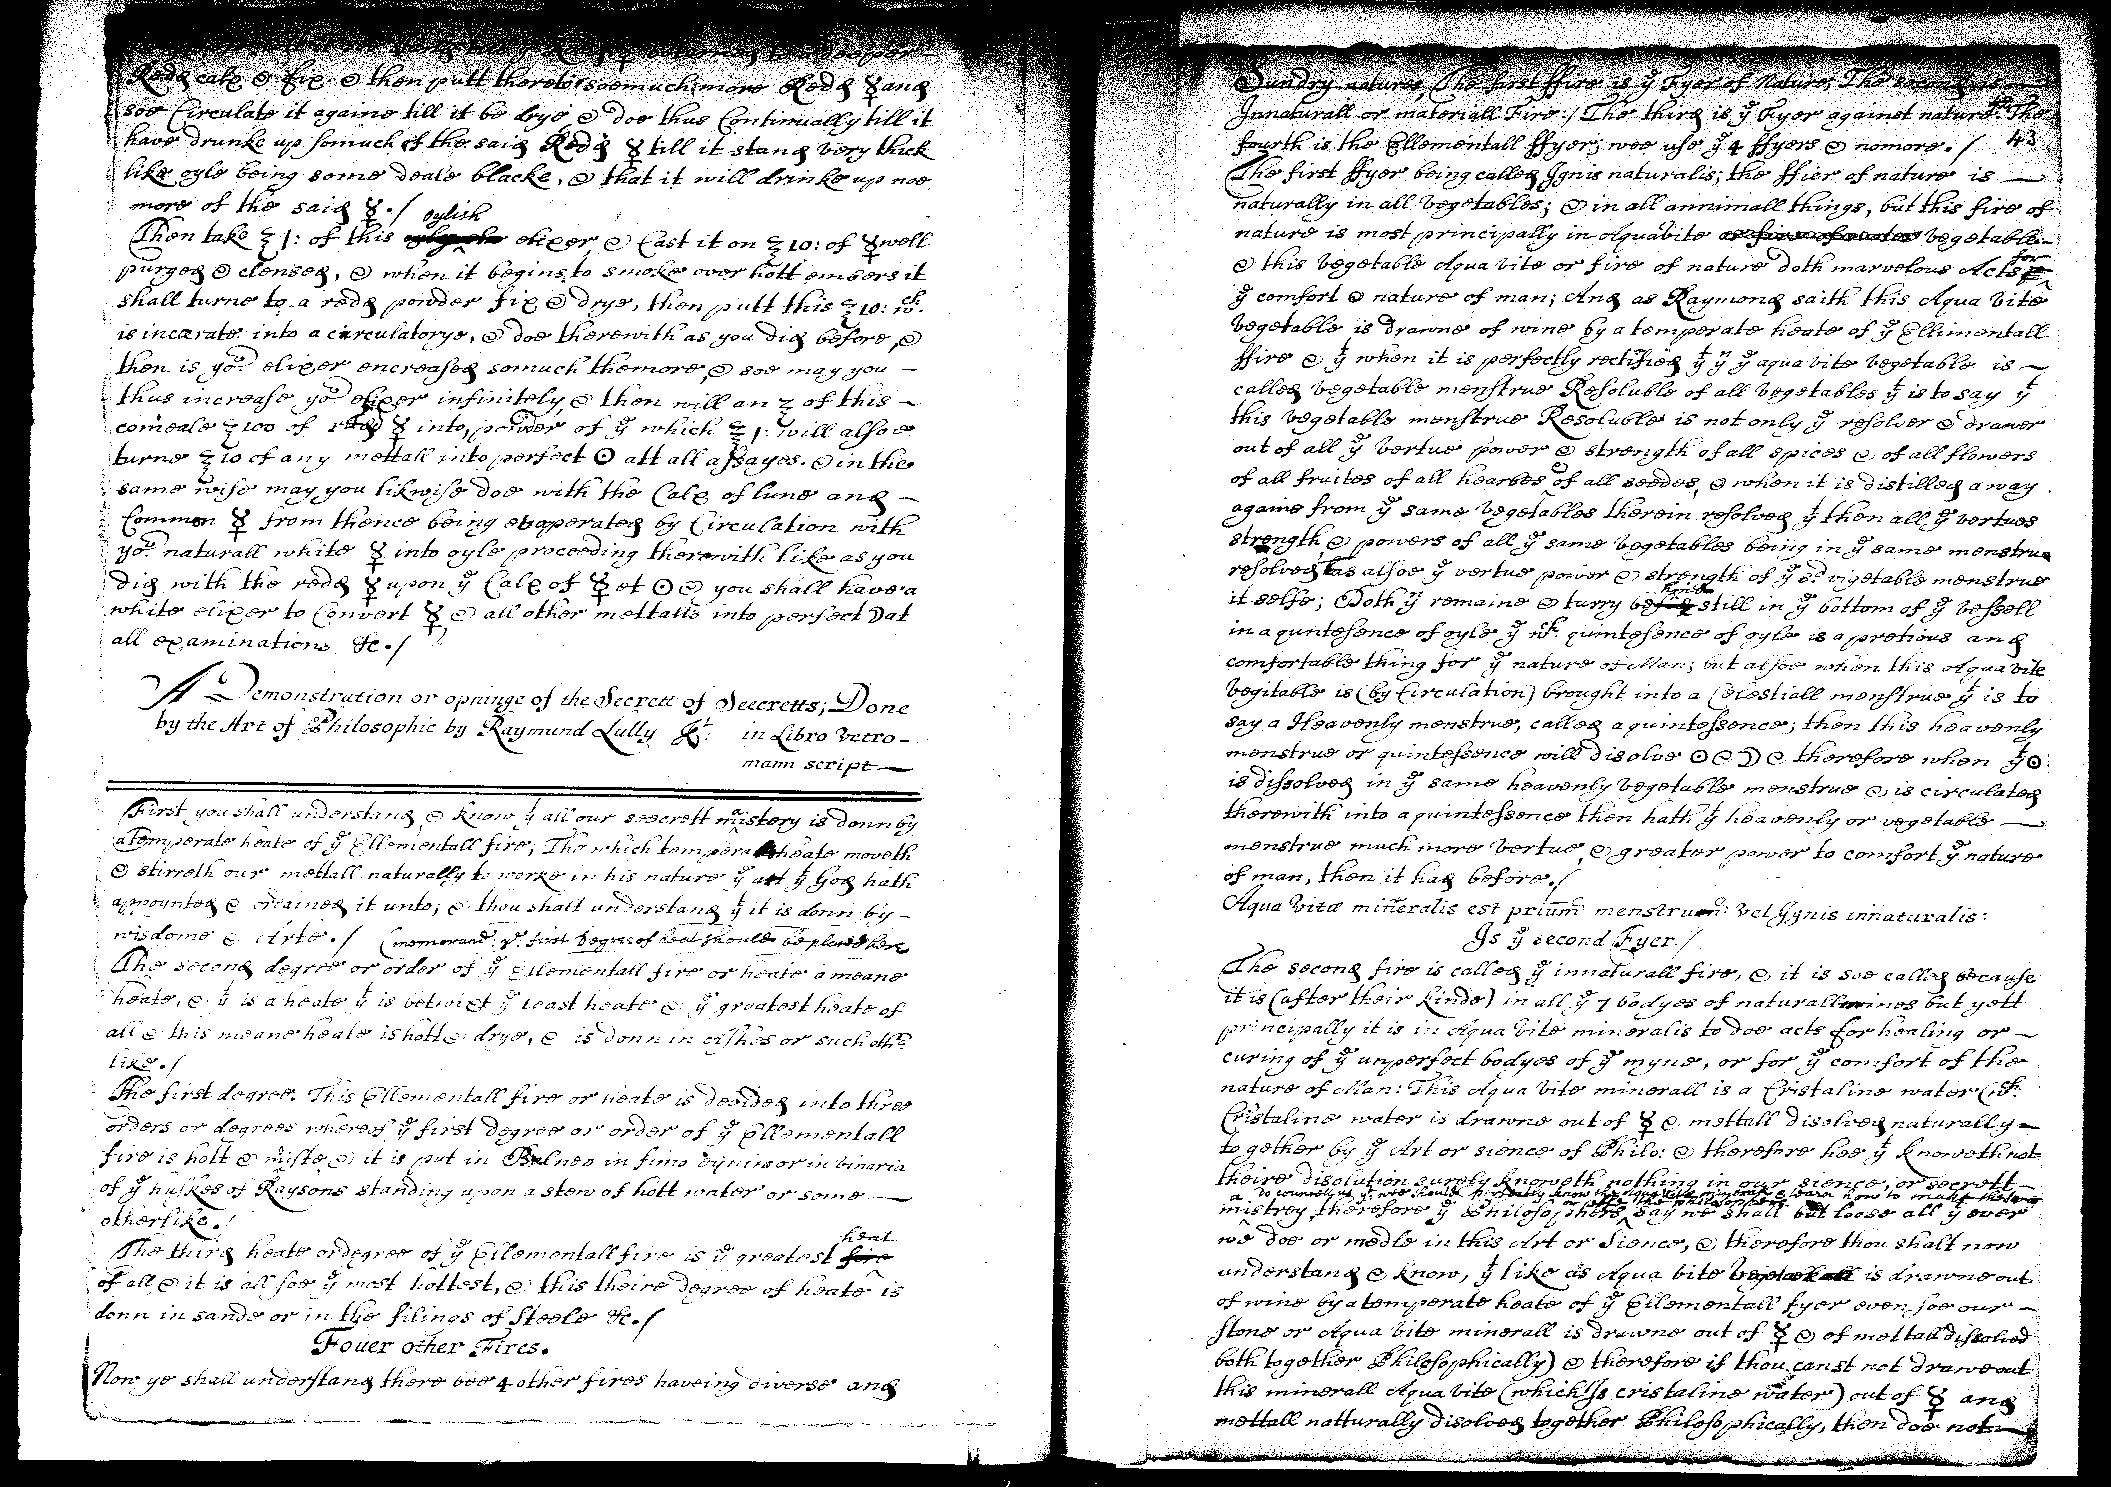 Redd calx & fix & then putt thereto soemuch more Redd ☿ and
soe Circulate it againe till it be drye & doe thus Continually till it
have drunke up somuch of the said Redd ☿ till it stand very thick
like oyle being some deale blacke, & that it will drinke up noe
more of the said ☿./
Then take ℥ 1: of this oylish elixer & Cast it on ℥ 10: of ☿ well
purged & clensed, & when it begins to smoke over hott embers it
shall turne to a redd powder fix & drye, then putt this ℥ 10: wch.
is incerate into a circulatorye, & doe therewith as you did before, &
then is yor elixer encreased somuch themore, & soe may you –
thus increase yor elixer infinitely, & then will an ℥ of this –
comeale ℥ 100 of redd ☿ into powder of ye which ℥ 1: will alsoe
turne ℥ 10 of any mettall into perfect ☉ att all assayes. & in the
same wise may you likwise doe with the Calx of lune and –
Common ☿ from thence being evaperated by Circulation with
yor naturall white ☿ into oyle proceeding therewith like as you
did with the redd ☿ upon ye Calx of ☿ et ☉ & you shall have a
white elixer to Convert ☿ & all other mettalls into perfect ☽ at
all examinations &c./
A Demonstration or opninge of the Secrett of Seecretts; Done
by the Art of Philosophie by Raymund Lully Kt: in Libro vetro–
mann script—
First you shall understand & know yt all our seecrett mistery is donn by
a Temperate heate of ye Ellementall fire; The which temperate heate moveth
& stirreth our mettall naturally to worke in his nature ye art yt God hath
appoynted & ordained it unto; & thou shalt understand yt it is donn by –
wisdome & Arte./ (memorand: ye first degree of heat should be placed here
The second degree or order of ye Ellementall fire or heate a meane
heate, & yt is a heate yt is betwixt ye least heate & ye greatest heate of
all & this meane heate is hott & drye, & is donn in ashes or such othr
like./
The first degree. This Ellementall fire or heate is devided into three
orders or degrees whereof ye first degree or order of ye Ellementall
fire is hott & miste & it is put in Balneo in fimo equino or in vinaria
of ye huskes of Raysons standing upon a stew of hott water or some —
otherlike./
The third heate or degree of ye Ellementall fire is ye greatest heat
of all & it is all soe ye most hottest, & this theire degree of heate is
donn in sande or in the filings of Steele &c./
Fouer other Fires.
Now ye shall understand there bee 4 other fires haveing diverse and
Sundry natures, The first ffire is ye Fyer of Nature; The
Innaturall or materiall Fire:/ The third is ye Fyer against nature The
fourth is the Ellementall ffyer; wee use ye 4 ffyers & nomore./ 43
The first ffyer being called Ignis naturalis; the ffier of nature is —
naturally in all vegetables; & in all annimall things, but this fire of
nature is most principally in Aquavite vegetable
& this vegetable Aqua vite or fire of nature doth marvelous Acts for
ye comfort & nature of man; And as Raymond saith this Aqua vite
vegetable is drawne of wine by a temperate heate of ye Ellimentall
ffire & yt when it is perfectly rectified yt ys ye aqua vite vegetable is –
called vegetable menstrue Resoluble of all vegetables yt is to say yt
this vegetable menstrue Resoluble is not only ye resolver & drawer
out of all ye vertue power & strength of all spices & of all flowers
of all fruites of all hearbes of all seedes, & when it is distilled away
againe from ye same vegetables therein resolved yt then all ye vertues
strength & powers of all ye same vegetables being in ye same menstrue
resolved as alsoe ye vertue power & strength of ye sd vigetable menstrue
it selfe; Doth yn remaine & turry behind still in ye bottom of ye vessell
in a quntesence of oyle ye wch. quintesence of oyle is a pretious and
comfortable thing for ye nature of Man; but alsoe when this Aqua vite
vegitable is (by Circulation) brought into a Celestiall menstrue yt is to
say a Heavenly menstrue, called a quintessence; then this heavenly
menstrue or quintessence will disolve ☉ & ☽ & therefore when ye ☉
is dissolved in ye same heavenly vegetable menstrue & is circulated
therewith into a quintessence then hath ye heavenly or vegetable —
menstrue much more vertue & greater power to comfort ye nature
of man, then it had before./
Aqua vitæ mineralis est prium menstruum: vel Ignis innaturalis:
Is ye second Fyer./
The second fire is called ye innaturall fire, & it is soe called because
it is (after their kinde) in all ye 7 bodyes of naturall mines but yett
principally it is in Aqua vite mineralis to doe acts for healing or –
curing of ye unperfect bodyes of ye myne, or for ye comfort of the
nature of Man: This Aqua vite minerall is a Cristaline water (wch:
Cristaline water is drawne out of ☿ & mettall disolved naturally –
together by ye Art or sience of Philo: & therefore hee yt knoweth not
theire disolution surely knoweth nothing in our sience, or secrett –
mistrey, therefore ye Philosophers say we shall but loose all yt ever
we doe or medle in this Art or Sience, & therefore thou shalt now
understand & know, yt like as Aqua vite is drawne out
of wine by a temperate heate of ye Ellementall fyer even soe our –
stone or Aqua vite minerall is drawne out of ☿ & of mettall dissolved
both together Philosophically) & therefore if thou canst not drawe out
this minerall Aqua vite (which Is cristaline water) out of ☿ and
mettall natturally disolved together Philosophically, then doe not